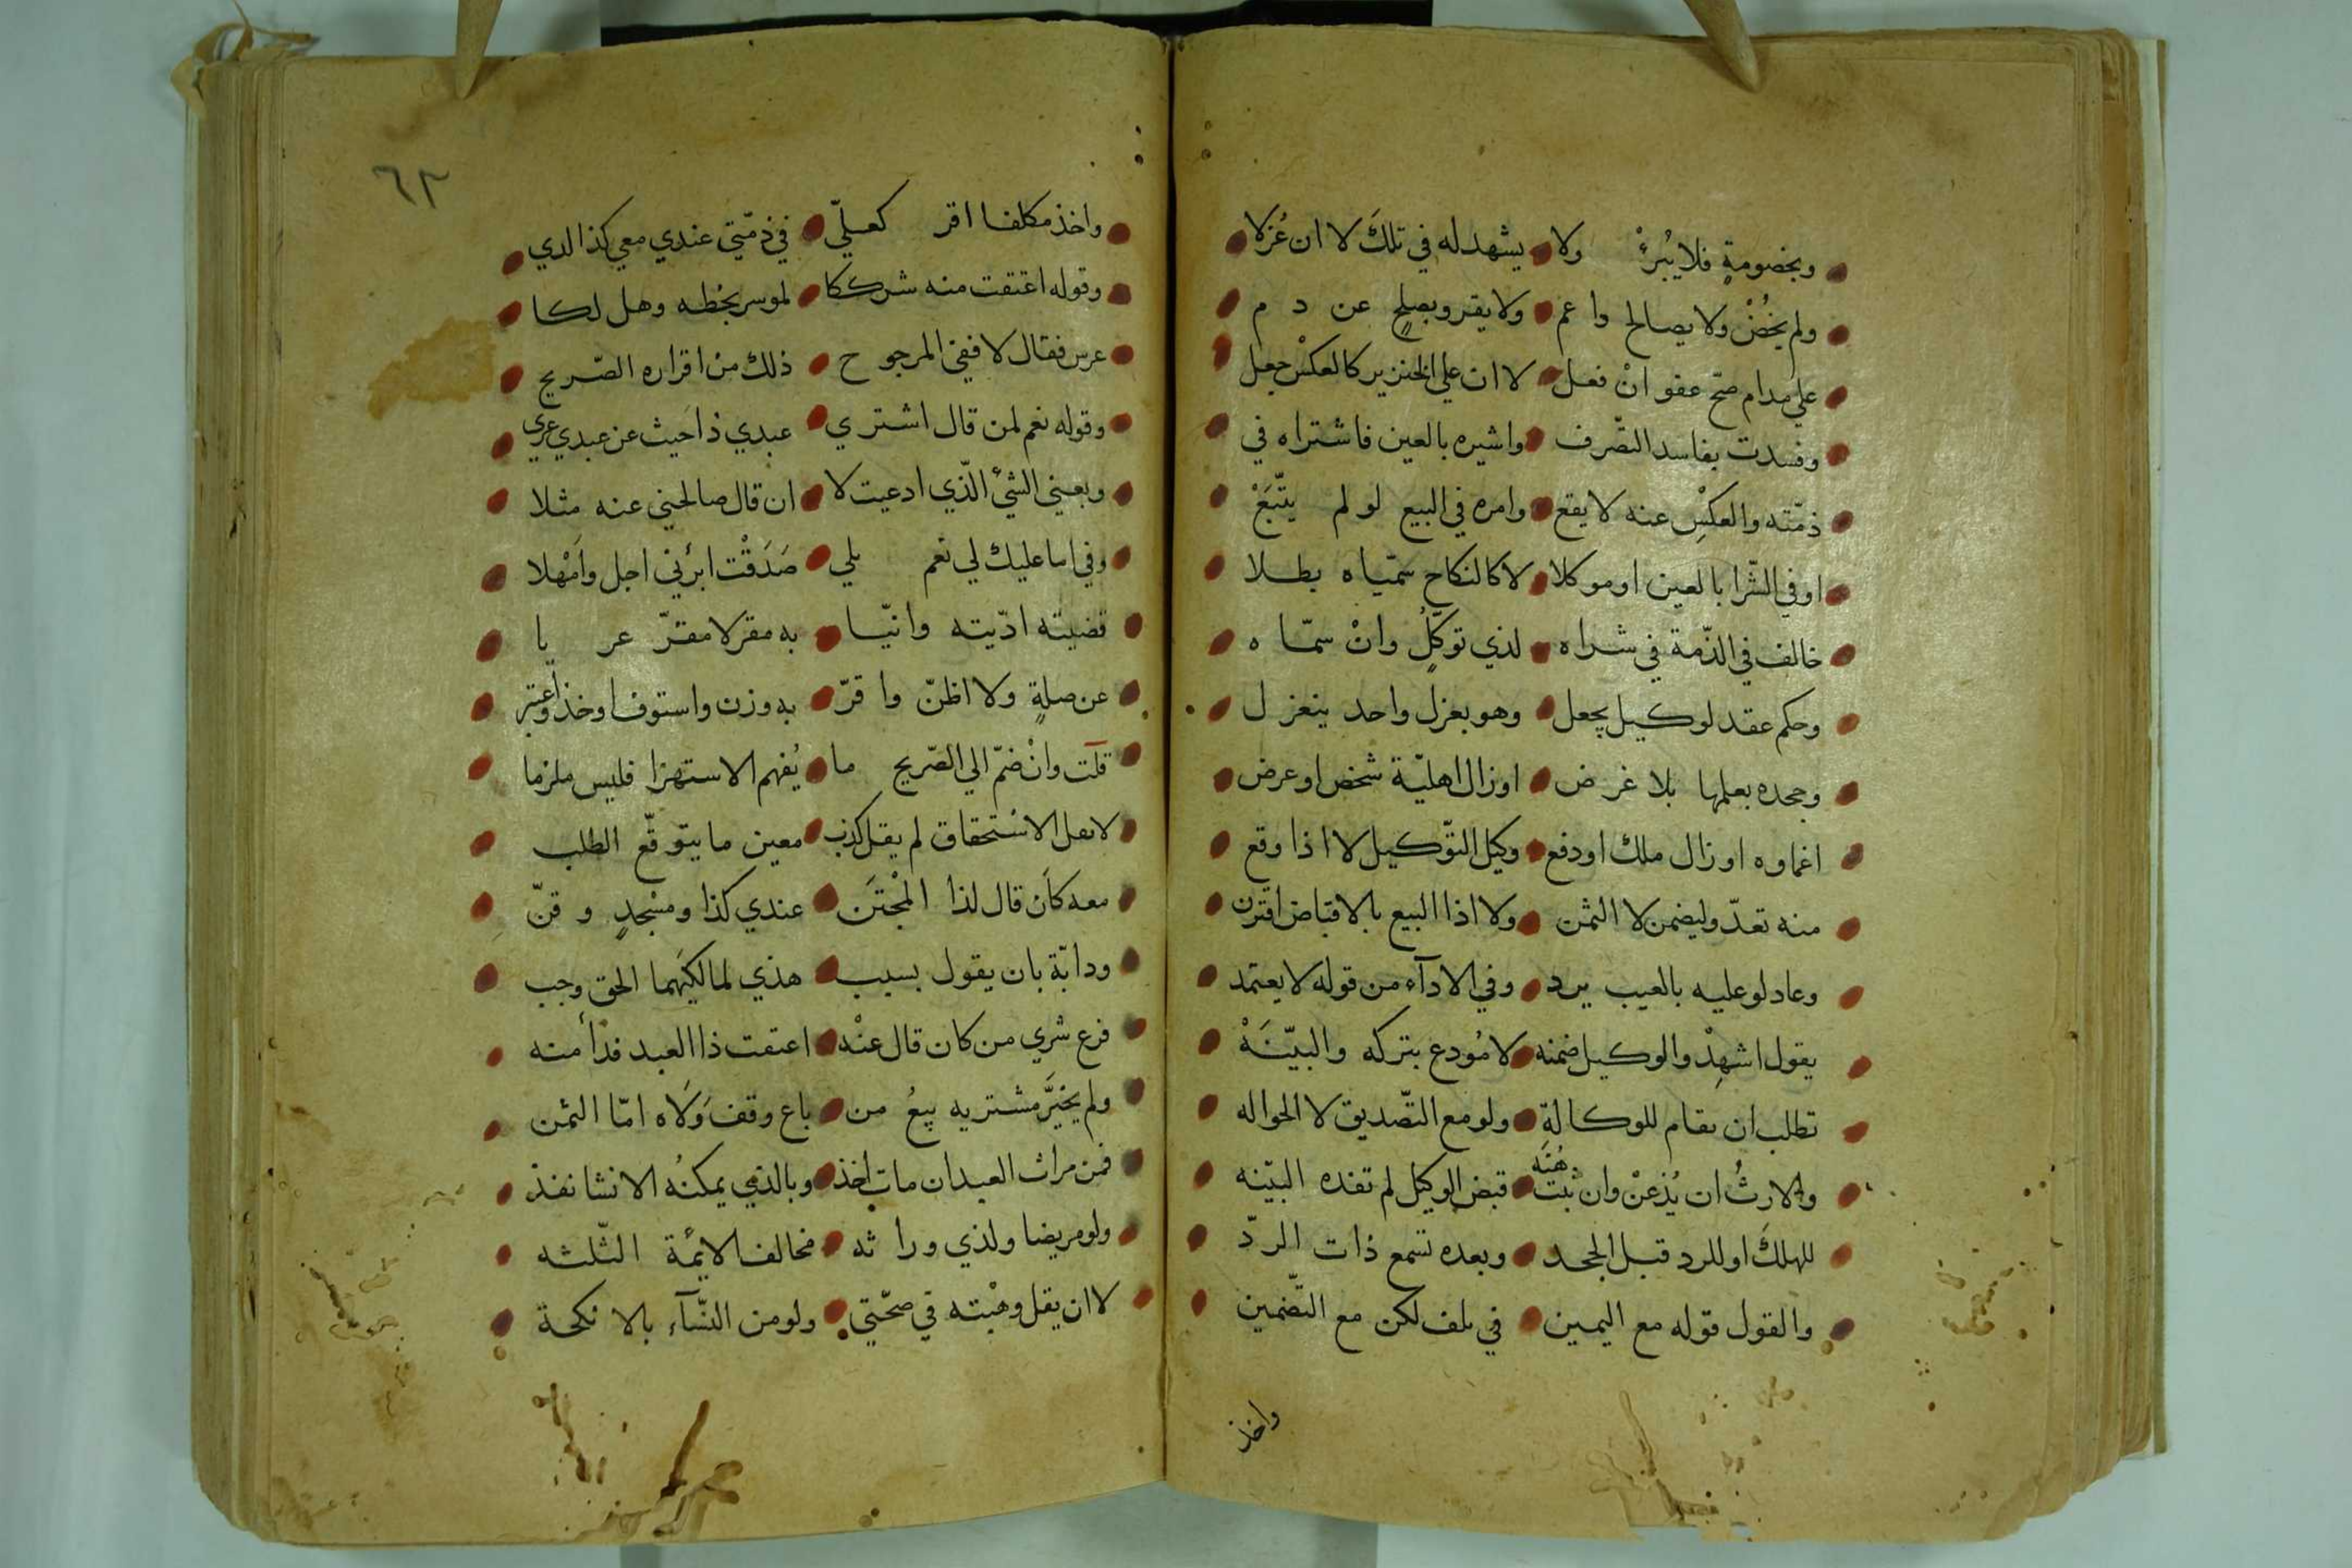 وبخصومةٍ فلا يُبرئْ ولا يشهد له في تلكَ لا ان عُزلا
ولم يخُنْ ولا يصالح واعم ولا يقر وبصلحٍ عن دم
علي مدام صحّ عفو انْ فعل لا ان علي الخنزير كالعكسْ جعل
وفسدت بفاسد التصّرف واشيره بالعين فاشتراه في
ذمّته والعكسِ عنه لا يقع وامره في البيع لو لم يتّبَعْ
او في الشّرا بالعين او موكلا لا كالنكاح سمّياه بطلا
خالف في الذّمة في شراه لذي توكّلٍ وانْ سمّاه
وحكم عقد لوكيل يجعل وهو بعزل واحد ينعزل
وجحده بعلمها بلا غرض او زال اهليّة شخص او عرض
اغماوه او زال ملك او دفع وكيل التوّكيل لا اذا وقع
منه تعدّ وليضمن لا الثمن ولا اذا البيع بالاقباض اقترن
وعاد لو عليه بالعيب يرد وفي الادآء من قوله لا يعتمد
يقول اشهِدْ والوكيل ضمنه لا مُودع بتركه والبيّنَهْ
تطلب ان تقام للوكالةِ ولو مع التّصديق لا الحواله
والارثُ ان يُذعنْ وان ثبّت هُنَه قبض الوكيل لم تفده البيّنه
للهلكَ او للرد قبل الجحد وبعده تسمع ذات الردّ
والقول قوله مع اليمين في تلف لكن مع التّضمين
واخذ
٦٢
واخذ مكلفا اقر كعليّ في ذمّتي عندي معي كذا لدي
وقوله اعتقت منه شرككا لموسر بخطه وهل لكا
عرس فقال لا ففي المرجوح ذلك من اقراره الصّريح
وقوله نعم لمن قال اشتري عبدي ذا حيث عن عبدي عري
وبعني الشئ الّذي ادعيت لا ان قال صالحني عنه مثلا
وفي اما عليك لي نعم بلي صَدَقْت ابرئني اجل وامْهلا
قضيته ادّيته وانيّا به مقر لا مقرّ عريا
عن صلةٍ ولا اظنّ واقرّ به وزن واستوفا وخذ واعتبر
قلت وانْ ضمّ الي الصّريح ما يُفهم الاستهزا فليس ملزما
لاهل الاسْتحقاق لم يقل كذب معين ما يتوقّع الطلب
معه كاَن قال لذا المجْتَن عندي كذا ومسْجدٍ وقنّ
ودابّة بان يقول بسبب هذي لمالكيَهما الحق وجب
فرع شري من كان قال عنْه اعتقت ذا العبد فدأ منه
ولم يخيَّر مشتريه بيعُ من باع وقف وَلَاه امّا الثمن
فمن مراث العبد ان مات اخذ وبالذي يمكنُه الانشا نفذ
ولو مريضا ولذي وراثه مخالف الايمّة الثّلثه
لا ان يقل وهبْته في صحّتي ولو من النّسآء بالانكحة